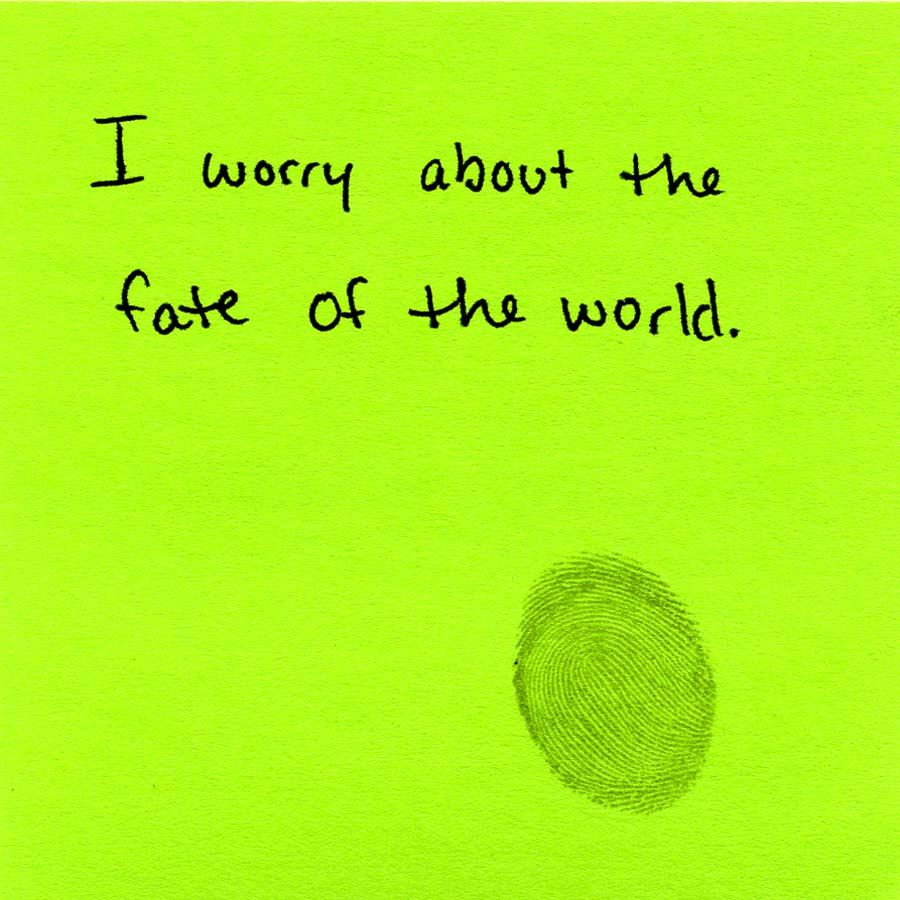 I worry about the
fate of the world.